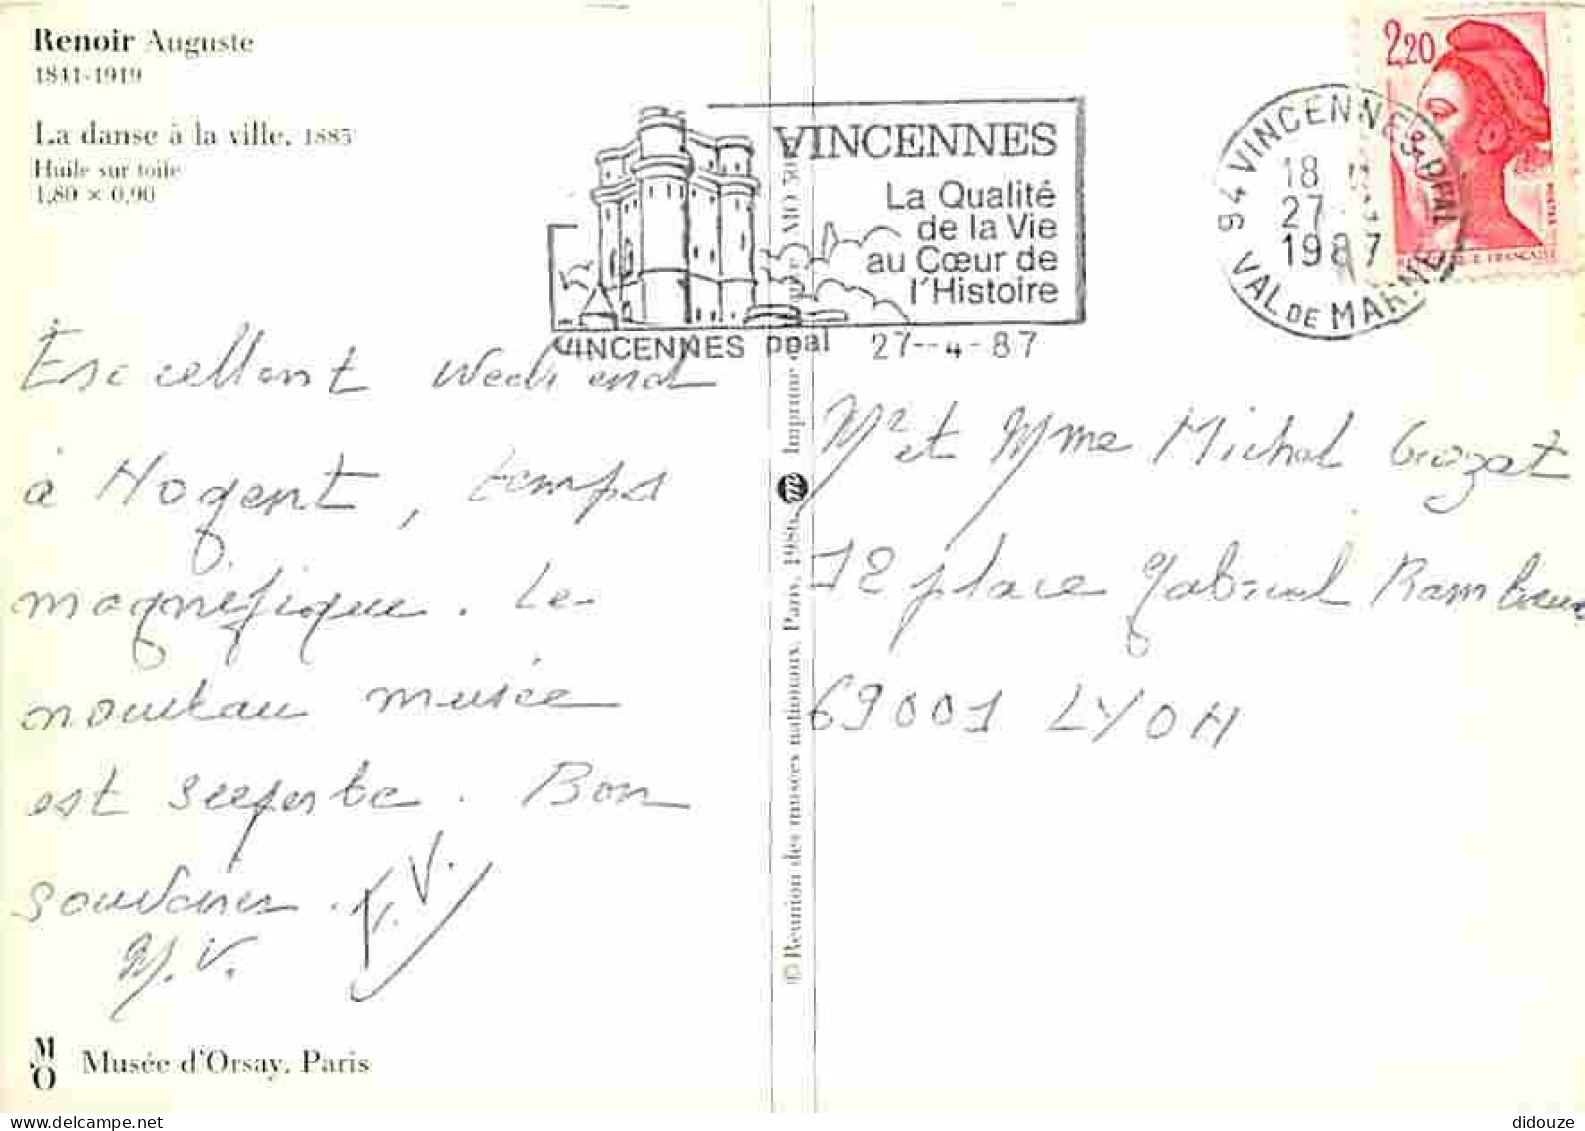 Renoir Auguste
1841-1919
La danse à la ville, 1883
Huile sur toile
1,80 × 0,90
VINCENNES
La Qualité
de la Vie
au Cœur de
l'Histoire
VINCENNES ppal 27-4-87
94 VINCENNES PPAL
18 H
27
1987
VAL DE MARNE
2,20
Excellent week end
à Nogent, temps
magnifique. Le
nouveau musée
est superbe. Bon
souvenir.
M.V.
Mr et Mme Michel Crozat
12 place Gabriel Rambaud
69001 LYON
© Réunion des musées nationaux, Paris, 1986
Imprimé
Musée d'Orsay, Paris
MO
didouze